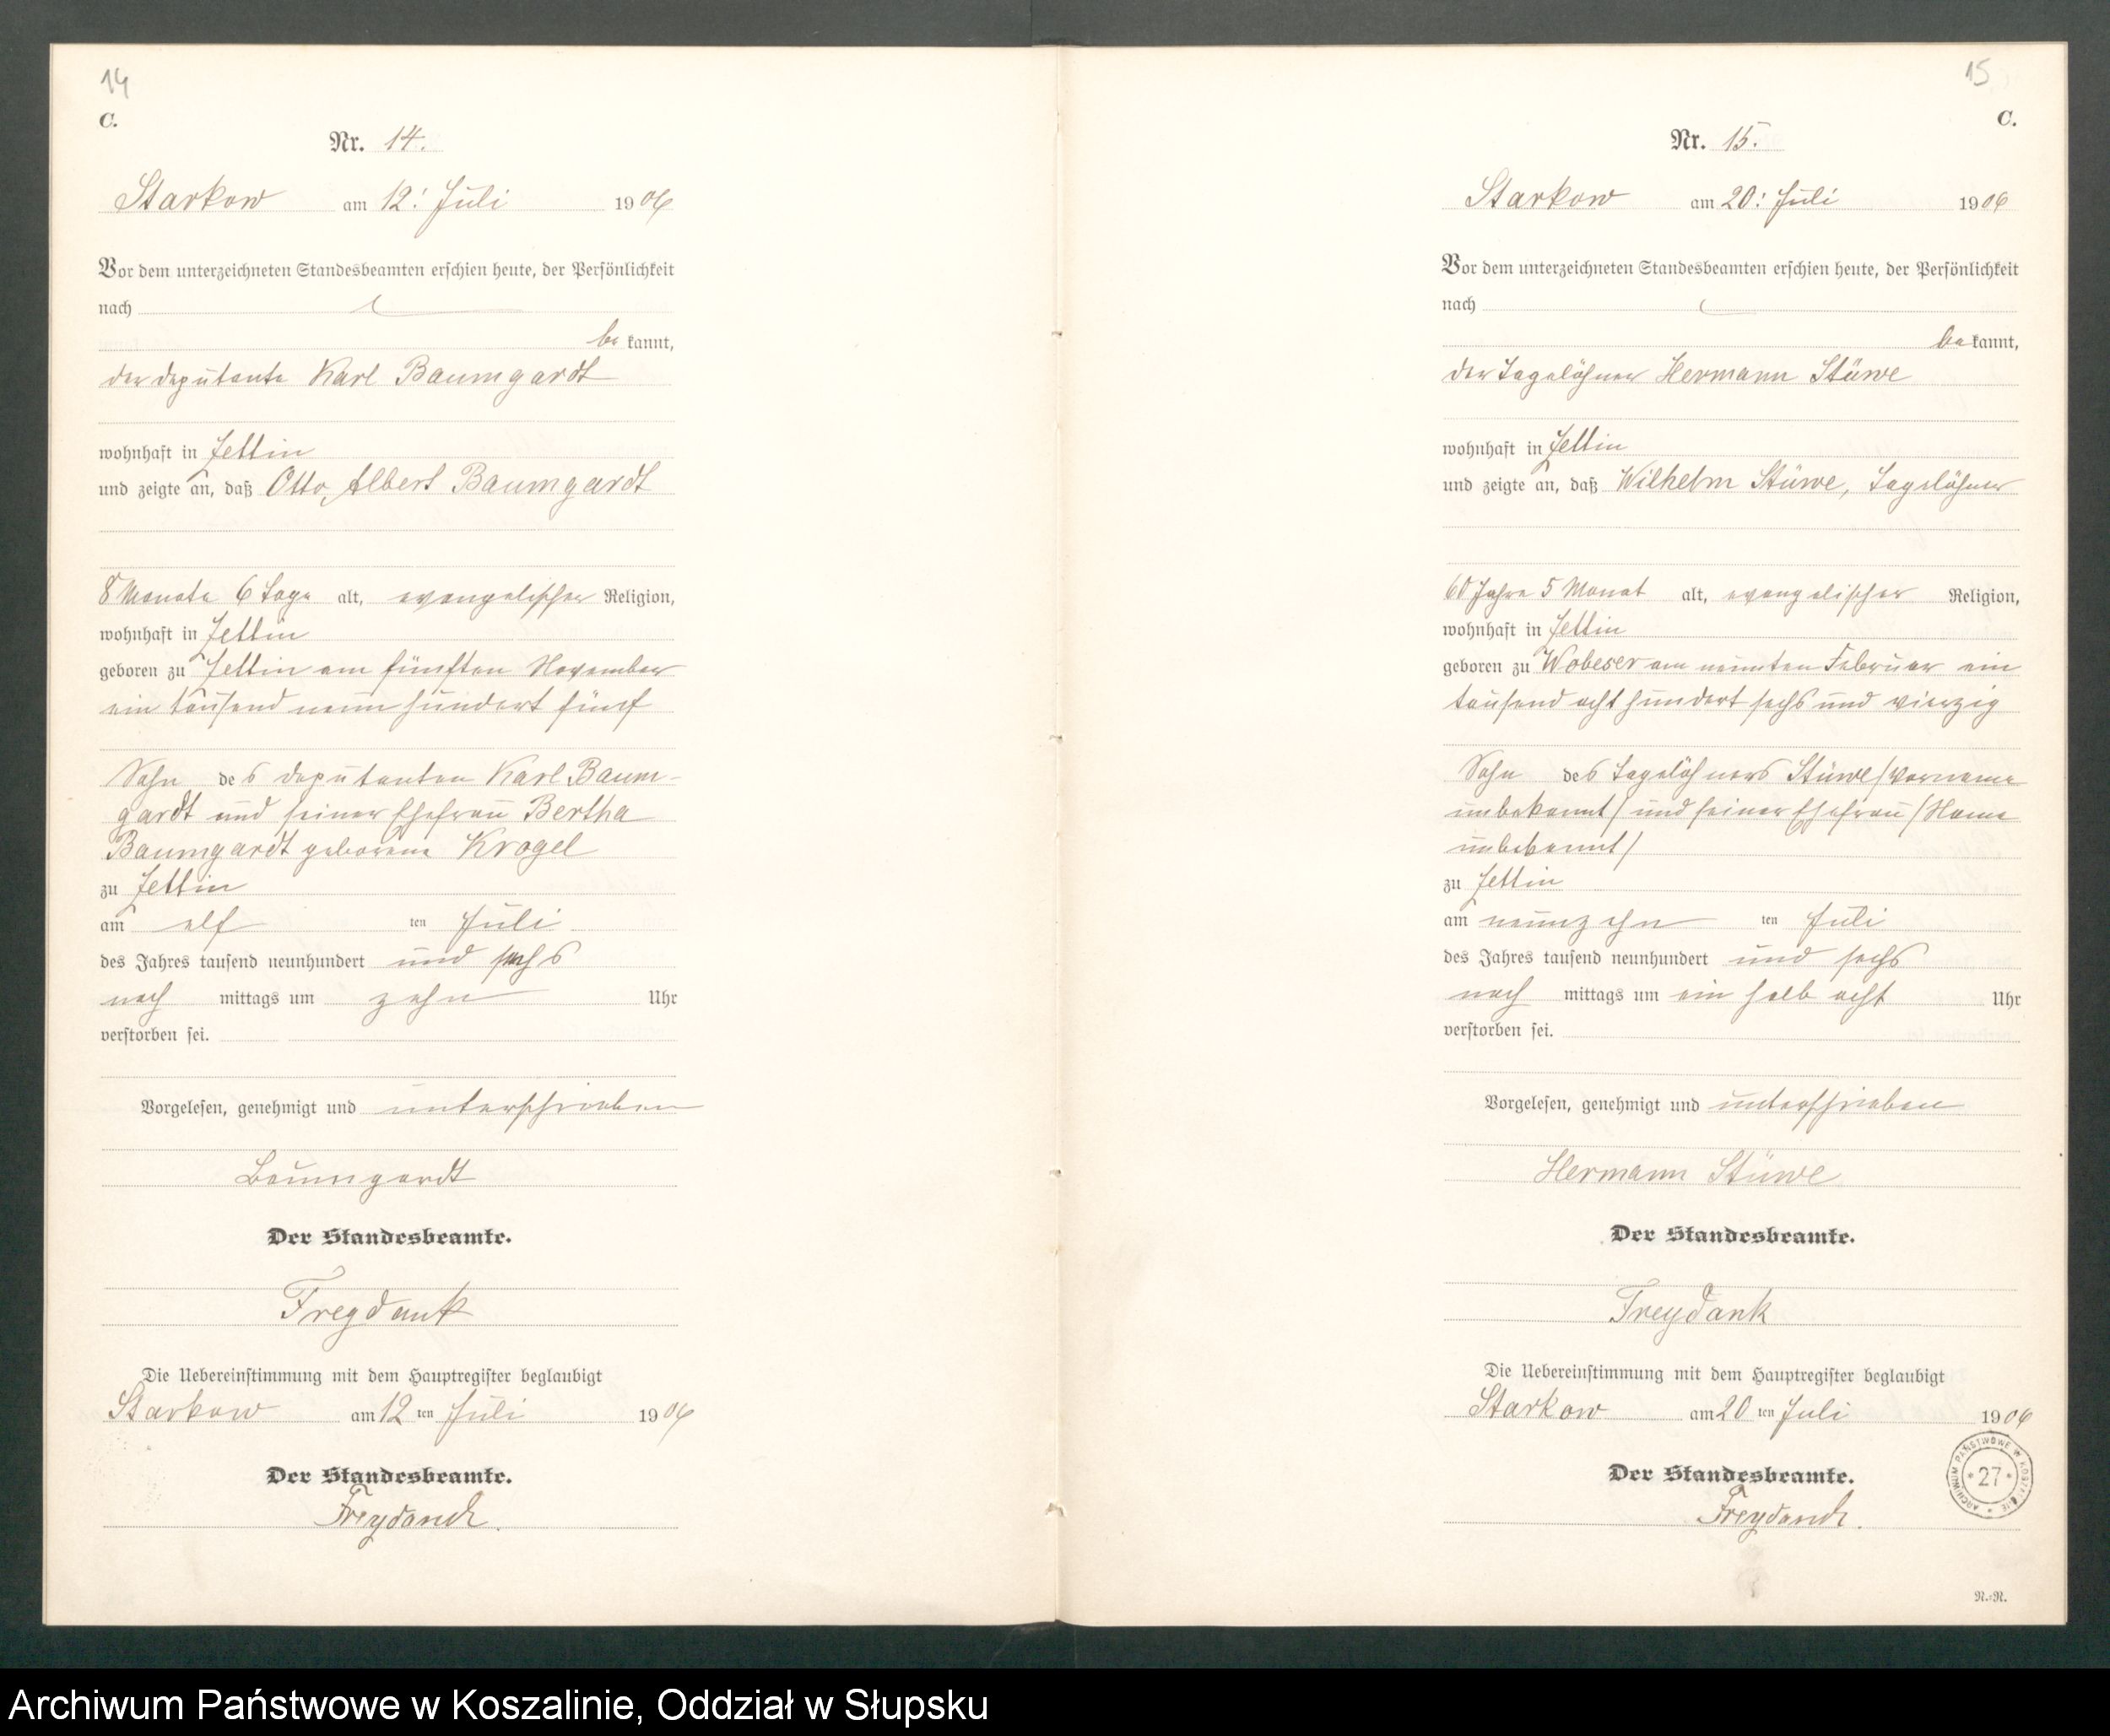 14
C.
Nr. 14.
Starkow am 12. Juli 1906
Vor dem unterzeichneten Standesbeamten erschien heute, der Persönlichkeit
nach
be kannt,
der Deputante Karl Baumgardt
wohnhaft in Jettin
und zeigte an, daß Otto Albert Baumgardt
8 Monate 6 Tage alt, evangelischer Religion,
wohnhaft in Jettin
geboren zu Jettin am fünften November
ein tausend neun hundert fünf
Sohn des Deputanten Karl Baum-
gardt und seiner Ehefrau Bertha
Baumgardt geborene Krogel
zu Jettin
am elf ten Juli
des Jahres tausend neunhundert und sechs
nach mittags um zehn Uhr
verstorben sei.
Vorgelesen, genehmigt und unterschrieben
Baumgardt
Der Standesbeamte.
Freydank
Die Uebereinstimmung mit dem Hauptregister beglaubigt
Starkow am 12 ten Juli 1906
Der Standesbeamte.
Freydank.
15
C.
Nr. 15.
Starkow am 20. Juli 1906
Vor dem unterzeichneten Standesbeamten erschien heute, der Persönlichkeit
nach
be kannt,
der Tagelöhner Hermann Stüwe
wohnhaft in Jettin
und zeigte an, daß Wilhelm Stüwe, Tagelöhner
60 Jahre 5 Monat alt, evangelischer Religion,
wohnhaft in Jettin
geboren zu Wobeser am neunten Februar ein
tausend acht hundert sechs und vierzig
Sohn des Tagelöhners Stüwe /Vorname
unbekannt/ und seiner Ehefrau /Name
unbekannt/
zu Jettin
am neunzehn ten Juli
des Jahres tausend neunhundert und sechs
nach mittags um ein halb acht Uhr
verstorben sei.
Vorgelesen, genehmigt und unterschrieben
Hermann Stüwe
Der Standesbeamte.
Freydank
Die Uebereinstimmung mit dem Hauptregister beglaubigt
Starkow am 20 ten Juli 1906
Der Standesbeamte.
Freydank.
ARCHIWUM PAŃSTWOWE W KOSZALINIE
* 27 *
N.:N.
Archiwum Państwowe w Koszalinie, Oddział w Słupsku